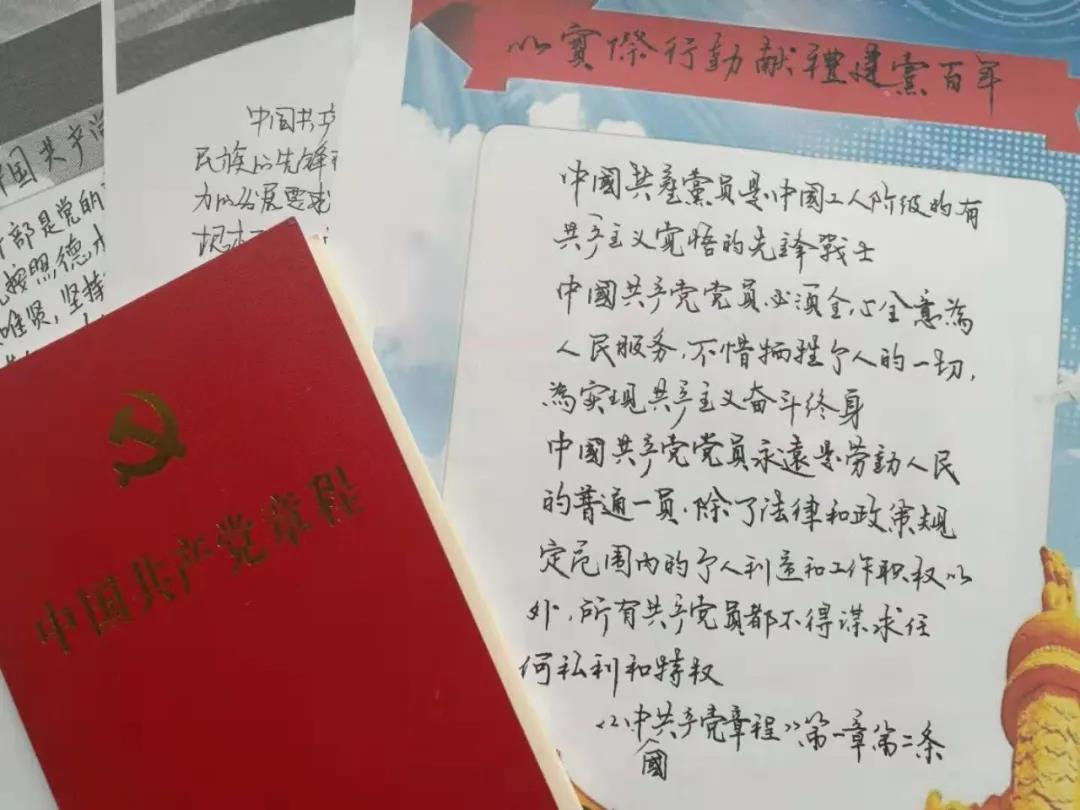 国共产党
部是党的
按照德、才
唯贤,坚持
中国共产
民族的先锋
力的发展要求
以實際行動献禮建黨百年
中國共產黨員是中國工人阶级的有
共产主义觉悟的先锋戰士
中國共产党党员必须全心全意為
人民服务,不惜牺牲个人的一切,
為实现共产主义奋斗终身
中國共产党党员永遠是劳動人民
的普通一員,除了法律和政策规
定范围内的个人利益和工作职权以
外,所有共产党员都不得谋求任
何私利和特权
《中共产党章程》第一章第二条
國
中国共产党章程